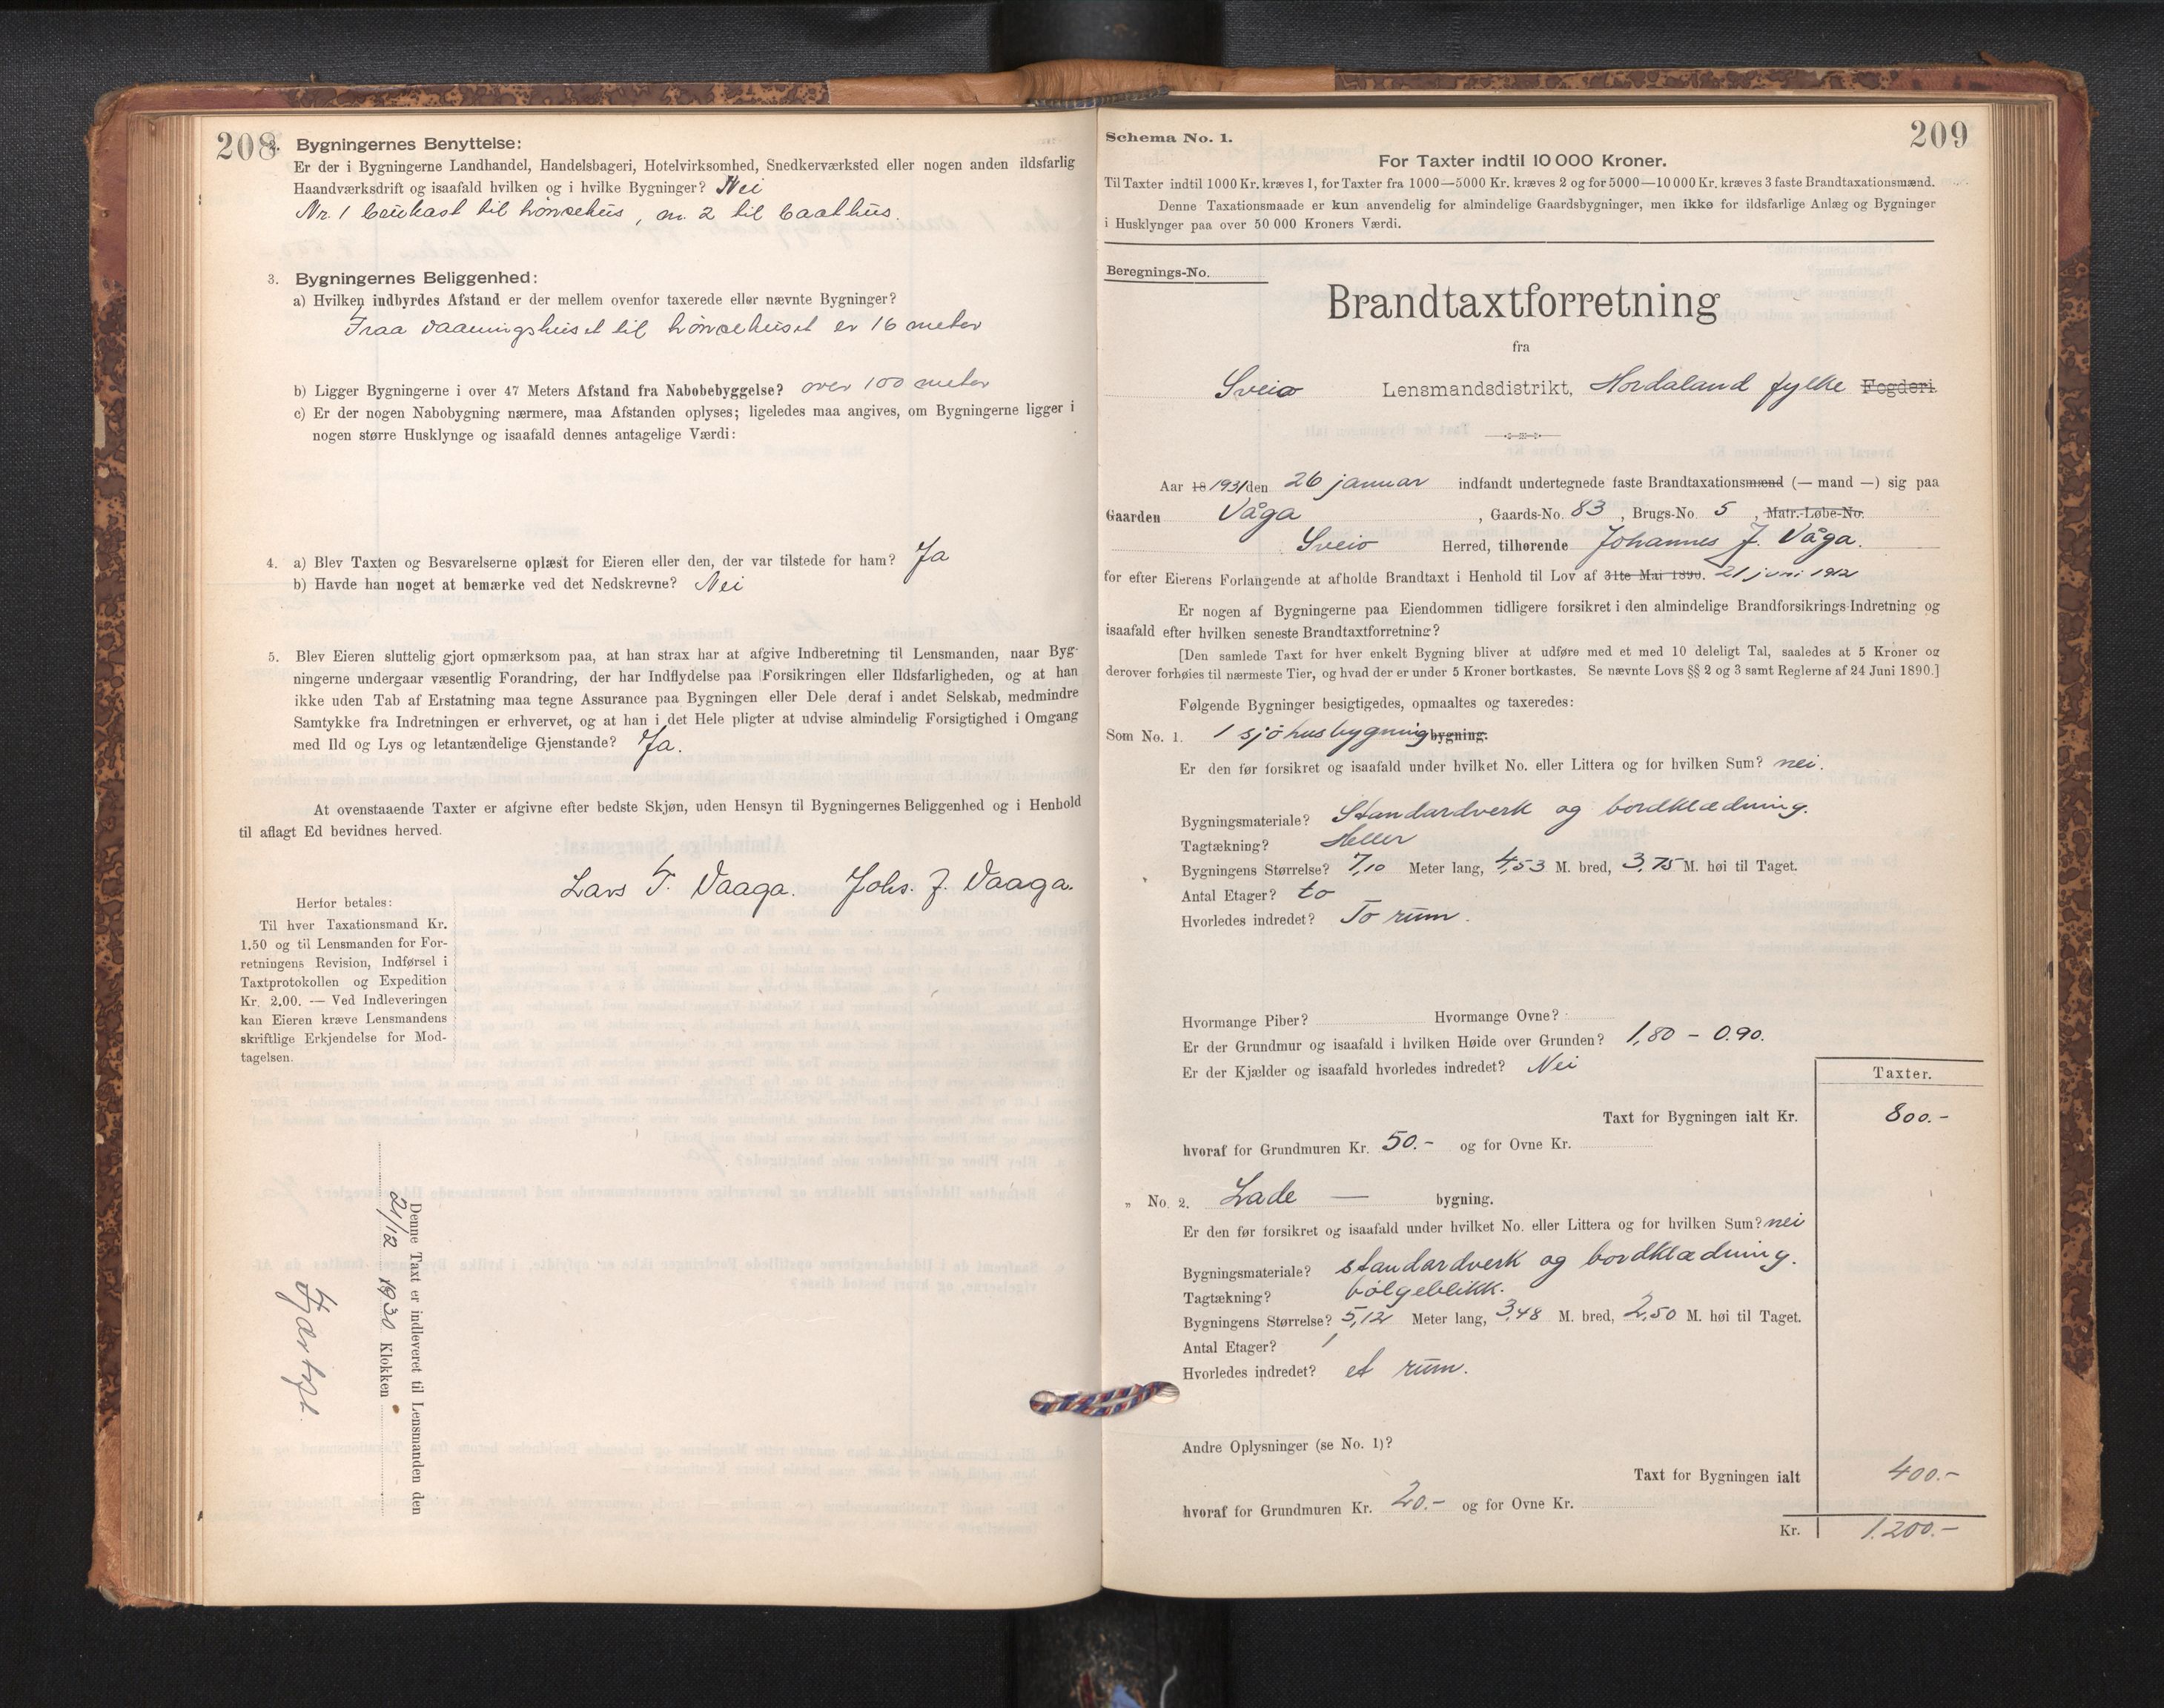 208
2. Bygningernes Benyttelse:
Er der i Bygningerne Landhandel, Handelsbageri, Hotelvirksomhed, Snedkerværksted eller nogen anden ildsfarlig
Haandværksdrift og isaafald hvilken og i hvilke Bygninger? Nei
Nr. 1 benkast til hønsehus, nr. 2 til baathus.
3. Bygningernes Beliggenhed:
a) Hvilken indbyrdes Afstand er der mellem ovenfor taxerede eller nævnte Bygninger?
Fraa vaaningshuset til hønsehuset er 16 meter
b) Ligger Bygningerne i over 47 Meters Afstand fra Nabobebyggelse? over 100 meter
c) Er der nogen Nabobygning nærmere, maa Afstanden oplyses; ligeledes maa angives, om Bygningerne ligger i
nogen større Husklynge og isaafald dennes antagelige Værdi:
4. a) Blev Taxten og Besvarelserne oplæst for Eieren eller den, der var tilstede for ham? Ja
b) Havde han noget at bemærke ved det Nedskrevne? Nei
5. Blev Eieren sluttelig gjort opmærksom paa, at han strax har at afgive Indberetning til Lensmanden, naar Byg-
ningerne undergaar væsentlig Forandring, der har Indflydelse paa Forsikringen eller Ildsfarligheden, og at han
ikke uden Tab af Erstatning maa tegne Assurance paa Bygningen eller Dele deraf i andet Selskab, medmindre
Samtykke fra Indretningen er erhvervet, og at han i det Hele pligter at udvise almindelig Forsigtighed i Omgang
med Ild og Lys og letantændelige Gjenstande? Ja.
At ovenstaaende Taxter er afgivne efter bedste Skjøn, uden Hensyn til Bygningernes Beliggenhed og i Henhold
til aflagt Ed bevidnes herved.
Lars T. Vaaga. Johs. J. Vaaga.
Herfor betales:
Til hver Taxationsmand Kr.
1.50 og til Lensmanden for For-
retningens Revision, Indførsel i
Taxtprotokollen og Expedition
Kr. 2.00. — Ved Indleveringen
kan Eieren kræve Lensmandens
skriftlige Erkjendelse for Mod-
tagelsen.
Denne Taxt er indleveret til Lensmanden den
21/12 1930 Klokken
209
Schema No. 1.
For Taxter indtil 10 000 Kroner.
Til Taxter indtil 1000 Kr. kræves 1, for Taxter fra 1000—5000 Kr. kræves 2 og for 5000—10 000 Kr. kræves 3 faste Brandtaxationsmænd.
Denne Taxationsmaade er kun anvendelig for almindelige Gaardsbygninger, men ikke for ildsfarlige Anlæg og Bygninger
i Husklynger paa over 50 000 Kroners Værdi.
Beregnings-No.
Brandtaxtforretning
fra
Sveio Lensmandsdistrikt, Hordaland fylke Fogderi
Aar 18 1931 den 26 januar indfandt undertegnede faste Brandtaxationsmænd (— mand —) sig paa
Gaarden Våga, Gaards-No. 83, Brugs-No. 5, Matr.-Løbe-No.
Sveio Herred, tilhørende Johannes J. Våga.
for efter Eierens Forlangende at afholde Brandtaxt i Henhold til Lov af 31te Mai 1890. 21 juni 1912
Er nogen af Bygningerne paa Eiendommen tidligere forsikret i den almindelige Brandforsikrings-Indretning og
isaafald efter hvilken seneste Brandtaxtforretning?
[Den samlede Taxt for hver enkelt Bygning bliver at udføre med et med 10 deleligt Tal, saaledes at 5 Kroner og
derover forhøies til nærmeste Tier, og hvad der er under 5 Kroner bortkastes. Se nævnte Lovs §§ 2 og 3 samt Reglerne af 24 Juni 1890.]
Følgende Bygninger besigtigedes, opmaaltes og taxeredes:
Som No. 1. 1 sjøhusbygning bygning.
Er den før forsikret og isaafald under hvilket No. eller Littera og for hvilken Sum? nei.
Bygningsmateriale? Standardverk og bordklædning.
Tagtækning? Heller
Bygningens Størrelse? 7,10 Meter lang, 4,53 M. bred, 3,75 M. høi til Taget.
Antal Etager? to
Hvorledes indredet? To rum.
Hvormange Piber? Hvormange Ovne?
Er der Grundmur og isaafald i hvilken Høide over Grunden? 1,80 – 0.90.
Er der Kjælder og isaafald hvorledes indredet? Nei
Taxter.
Taxt for Bygningen ialt Kr. 800.-
hvoraf for Grundmuren Kr. 50.- og for Ovne Kr.
„ No. 2. Lade — bygning.
Er den før forsikret og isaafald under hvilket No. eller Littera og for hvilken Sum? nei
Bygningsmateriale? standardverk og bordklædning.
Tagtækning? bølgeblikk.
Bygningens Størrelse? 5,12 Meter lang, 3,48 M. bred, 2,50 M. høi til Taget.
Antal Etager? 1
Hvorledes indredet? et rum.
Andre Oplysninger (se No. 1)?
Taxt for Bygningen ialt 400.-
hvoraf for Grundmuren Kr. 20.- og for Ovne Kr.
Kr. 1.200.-